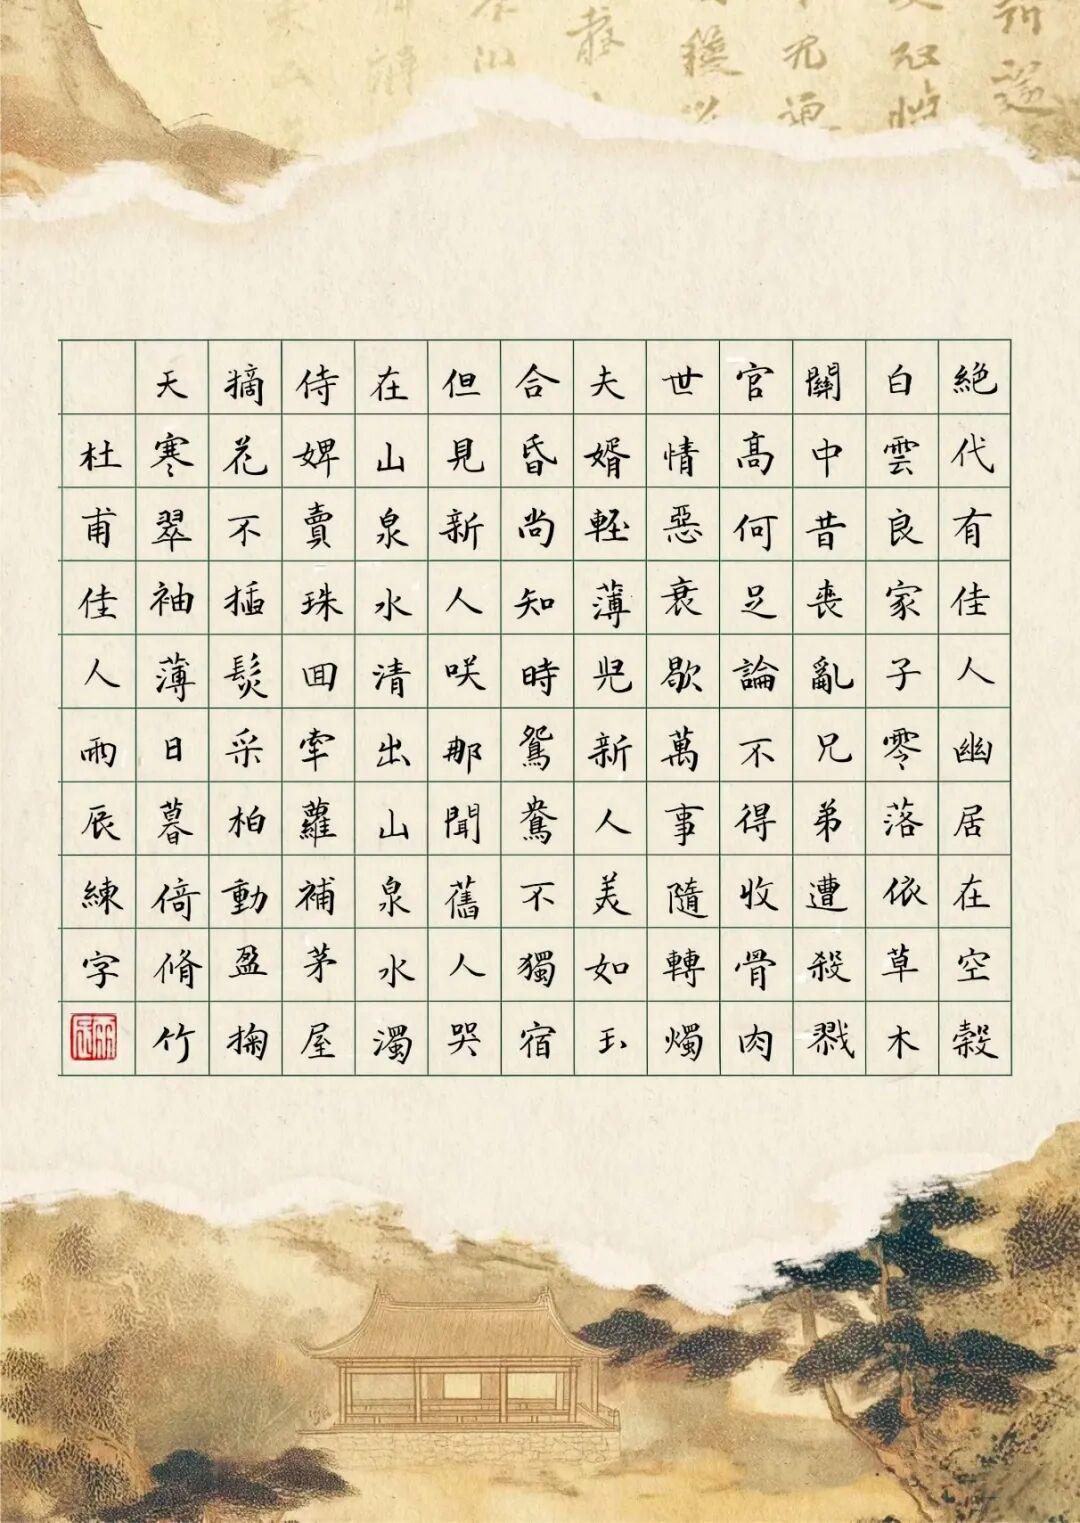 絕代有佳人幽居在空穀
白雲良家子零落依草木
關中昔喪亂兄弟遭殺戮
官高何足論不得收骨肉
世情惡衰歇萬事隨轉燭
夫婿輕薄兒新人美如玉
合昏尚知時鴛鴦不獨宿
但見新人咲那聞舊人哭
在山泉水清出山泉水濁
侍婢賣珠囬牽蘿補茅屋
摘花不插髮采柏動盈掬
天寒翠袖薄日暮倚脩竹
杜甫佳人雨辰練字